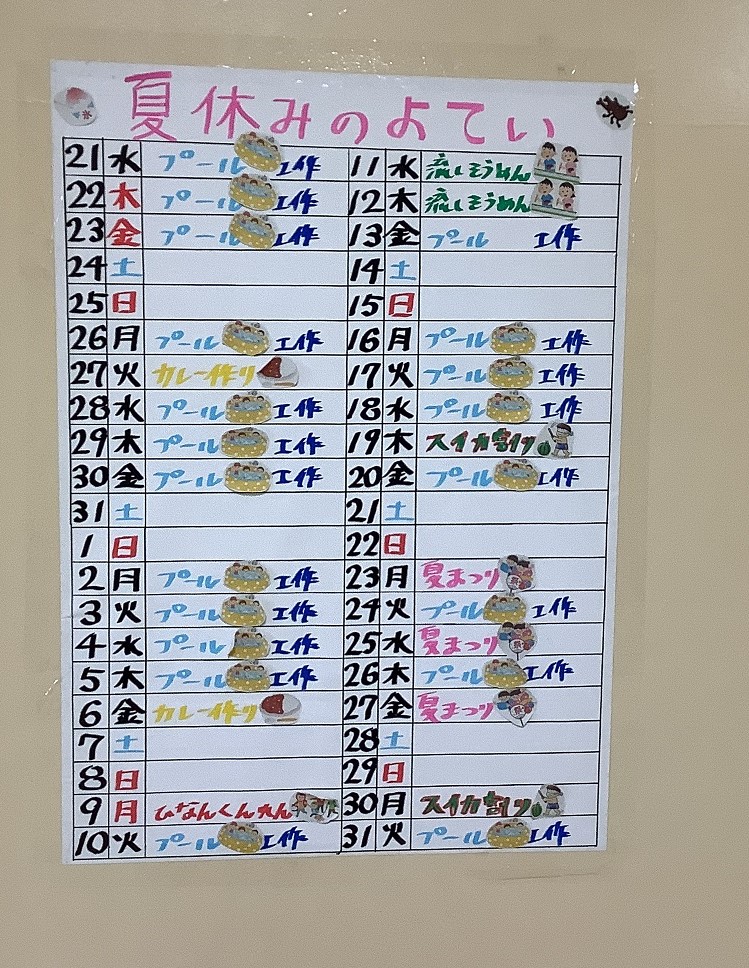 夏休みのよてい
21 水 プール 工作
22 木 プール 工作
23 金 プール 工作
24 土
25 日
26 月 プール 工作
27 火 カレー作り
28 水 プール 工作
29 木 プール 工作
30 金 プール 工作
31 土
1 日
2 月 プール 工作
3 火 プール 工作
4 水 プール 工作
5 木 プール 工作
6 金 カレー作り
7 土
8 日
9 月 ひなんくんれん
10 火 プール 工作
11 水 流しそうめん
12 木 流しそうめん
13 金 プール 工作
14 土
15 日
16 月 プール 工作
17 火 プール 工作
18 水 プール 工作
19 木 スイカ割り
20 金 プール 工作
21 土
22 日
23 月 夏まつり
24 火 プール 工作
25 水 夏まつり
26 木 プール 工作
27 金 夏まつり
28 土
29 日
30 月 スイカ割り
31 火 プール 工作